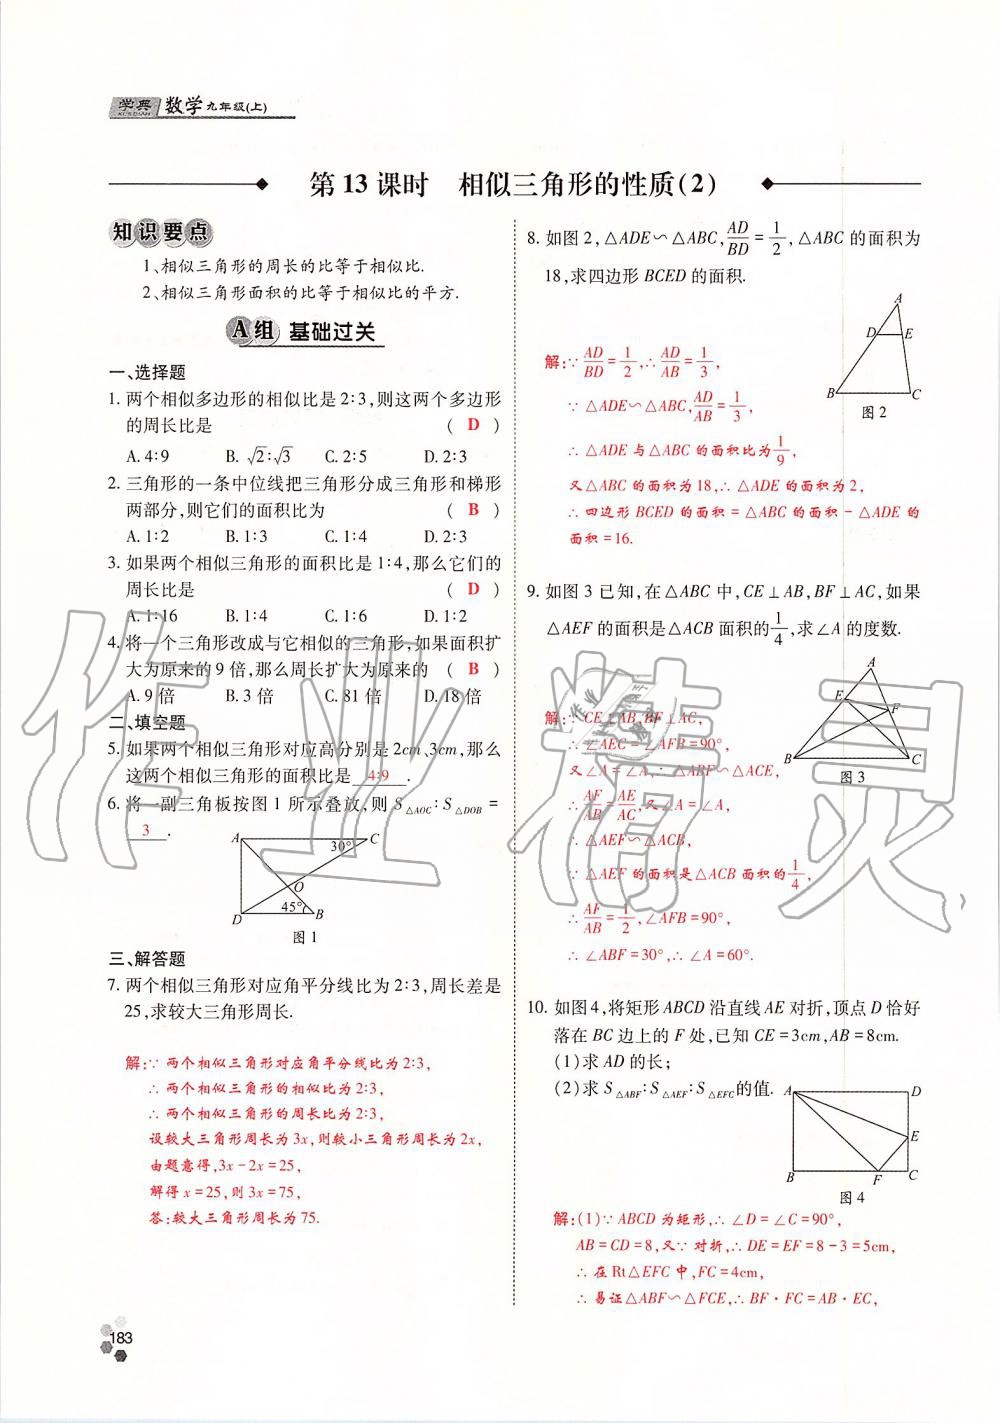 学典 数学九年级(上)
XUE DIAN
第13课时 相似三角形的性质(2)
知识要点
1、相似三角形的周长的比等于相似比.
2、相似三角形面积的比等于相似比的平方.
A组 基础过关
一、选择题
1. 两个相似多边形的相似比是2∶3,则这两个多边形
的周长比是 ( D )
A. 4∶9 B. √2∶√3 C. 2∶5 D. 2∶3
2. 三角形的一条中位线把三角形分成三角形和梯形
两部分,则它们的面积比为 ( B )
A. 1∶2 B. 1∶3 C. 1∶4 D. 2∶3
3. 如果两个相似三角形的面积比是1∶4,那么它们的
周长比是 ( D )
A. 1∶16 B. 1∶4 C. 1∶6 D. 1∶2
4. 将一个三角形改成与它相似的三角形,如果面积扩
大为原来的9倍,那么周长扩大为原来的 ( B )
A. 9倍 B. 3倍 C. 81倍 D. 18倍
二、填空题
5. 如果两个相似三角形对应高分别是2cm、3cm,那么
这两个相似三角形的面积比是 4∶9 .
6. 将一副三角板按图1所示叠放,则S△AOC∶S△DOB=
3 .
A C 30° O D 45° B
图1
三、解答题
7. 两个相似三角形对应角平分线比为2∶3,周长差是
25,求较大三角形周长.
解:∵两个相似三角形对应角平分线比为2∶3,
∴两个相似三角形的相似比为2∶3,
∴两个相似三角形的周长比为2∶3,
设较大三角形周长为3x,则较小三角形周长为2x,
由题意得,3x-2x=25,
解得x=25,则3x=75,
答:较大三角形周长为75.
8. 如图2,△ADE∽△ABC,AD/BD=1/2,△ABC的面积为
18,求四边形BCED的面积.
A D E B C
图2
解:∵AD/BD=1/2,∴AD/AB=1/3,
∵△ADE∽△ABC,AD/AB=1/3,
∴△ADE与△ABC的面积比为1/9,
又△ABC的面积为18,∴△ADE的面积为2,
∴四边形BCED的面积=△ABC的面积-△ADE的
面积=16.
9. 如图3已知,在△ABC中,CE⊥AB,BF⊥AC,如果
△AEF的面积是△ACB面积的1/4,求∠A的度数.
A E F B C
图3
解:∵CE⊥AB,BF⊥AC,
∴∠AEC=∠AFB=90°,
又∠A=∠A,∴△ABF∽△ACE,
∴AF/AB=AE/AC,又∠A=∠A,
∴△AEF∽△ACB,
∵△AEF的面积是△ACB面积的1/4,
∴AF/AB=1/2,∠AFB=90°,
∴∠ABF=30°,∴∠A=60°.
10. 如图4,将矩形ABCD沿直线AE对折,顶点D恰好
落在BC边上的F处,已知CE=3cm,AB=8cm.
(1)求AD的长;
(2)求S△ABF∶S△AEF∶S△EFC的值.
A D E B F C
图4
解:(1)∵ABCD为矩形,∴∠D=∠C=90°,
AB=CD=8,又∵对折,∴DE=EF=8-3=5cm,
∴在Rt△EFC中,FC=4cm,
∴易证△ABF∽△FCE,∴BF·FC=AB·EC,
183
作业精灵